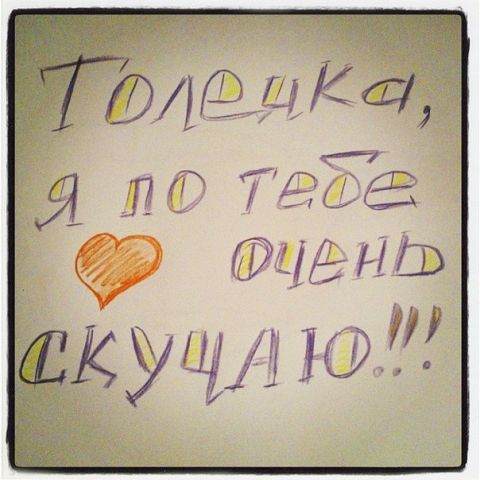 Толечка,
я по тебе
очень
скучаю!!!